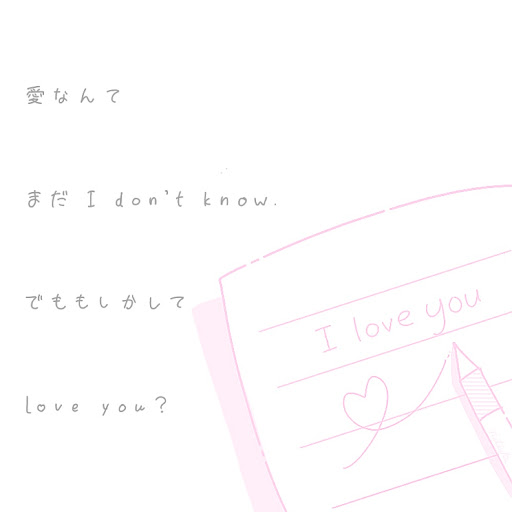 愛なんて
まだ I don't know.
でももしかして
love you?
I love you